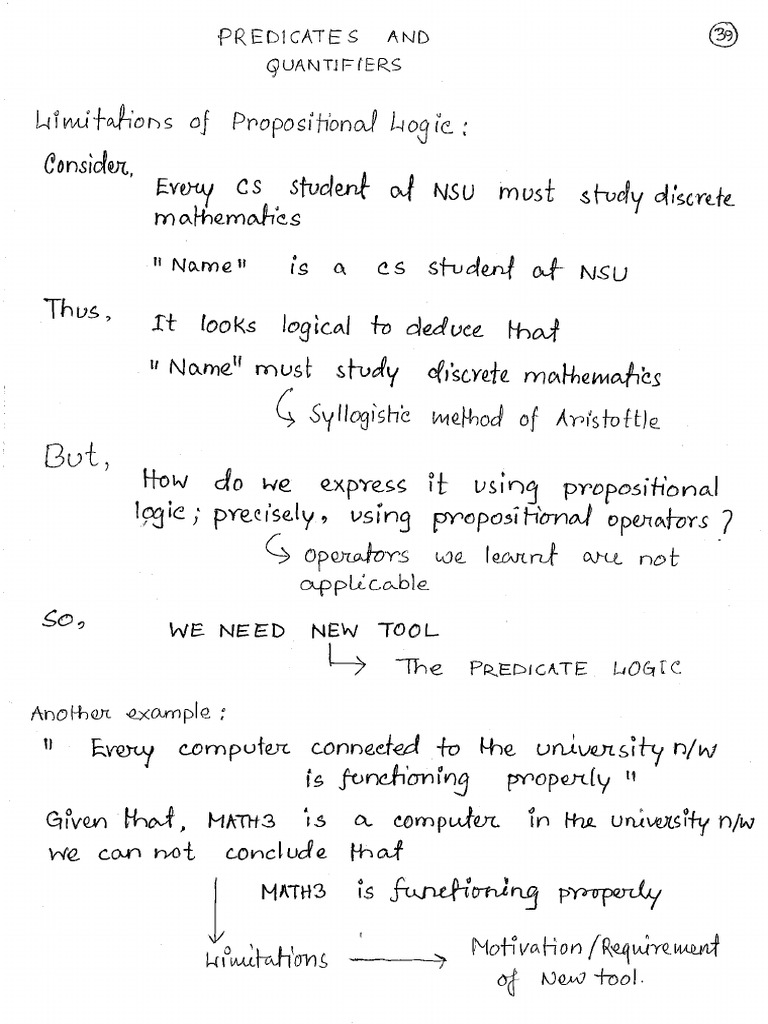 PREDICATES AND
39
QUANTIFIERS
Limitations of Propositional Logic:
Consider,
Every CS student at NSU must study discrete
mathematics
"Name" is a CS student at NSU
Thus,
It looks logical to deduce that
"Name" must study discrete mathematics
Syllogistic method of Aristoftle
But,
How do we express it using propositional
logic; precisely, using propositional operators?
operators we learnt are not
applicable
So,
WE NEED NEW TOOL
The PREDICATE LOGIC
Another example:
" Every computer connected to the university n/w
is functioning properly "
Given that, MATH3 is a computer in the university n/w
we can not conclude that
MATH3 is functioning properly
Limitations
Motivation/Requirement
of New tool.